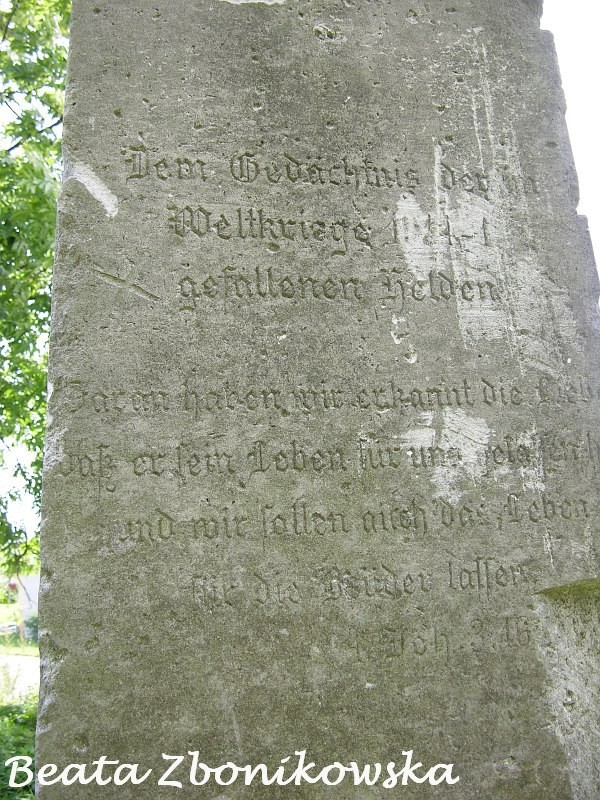 Dem Gedächtnis der im
Weltkriege 1914-1
gefallenen Helden
Daran haben wir erkannt die Liebe
daß er sein Leben für uns gelassen h
und wir sollen auch das Leben
für die Brüder lassen.
1. Joh. 3.16
Beata Zbonikowska